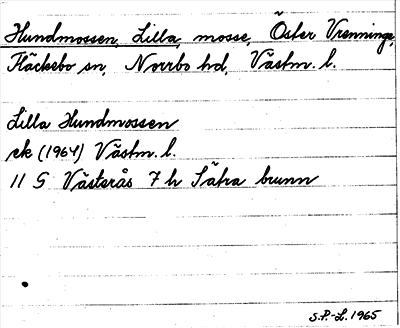 Hundmossen, Lilla, mosse, Öster Vrenninge,
Fläckebo sn, Norrbo hd, Västm. l.
Lilla Hundmossen
ek (1964) Västm. l.
11 G Västerås 7 h Sätra brunn
S.P.-L. 1965